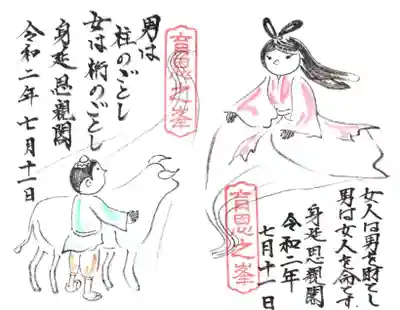 育恩之峯
男は
柱のごとし
女は桁のごとし
身延思親閣
令和二年 七月十一日
女人は男を財とし
男は女人を命とす
身延思親閣
令和二年
七月十一日
育恩之峯